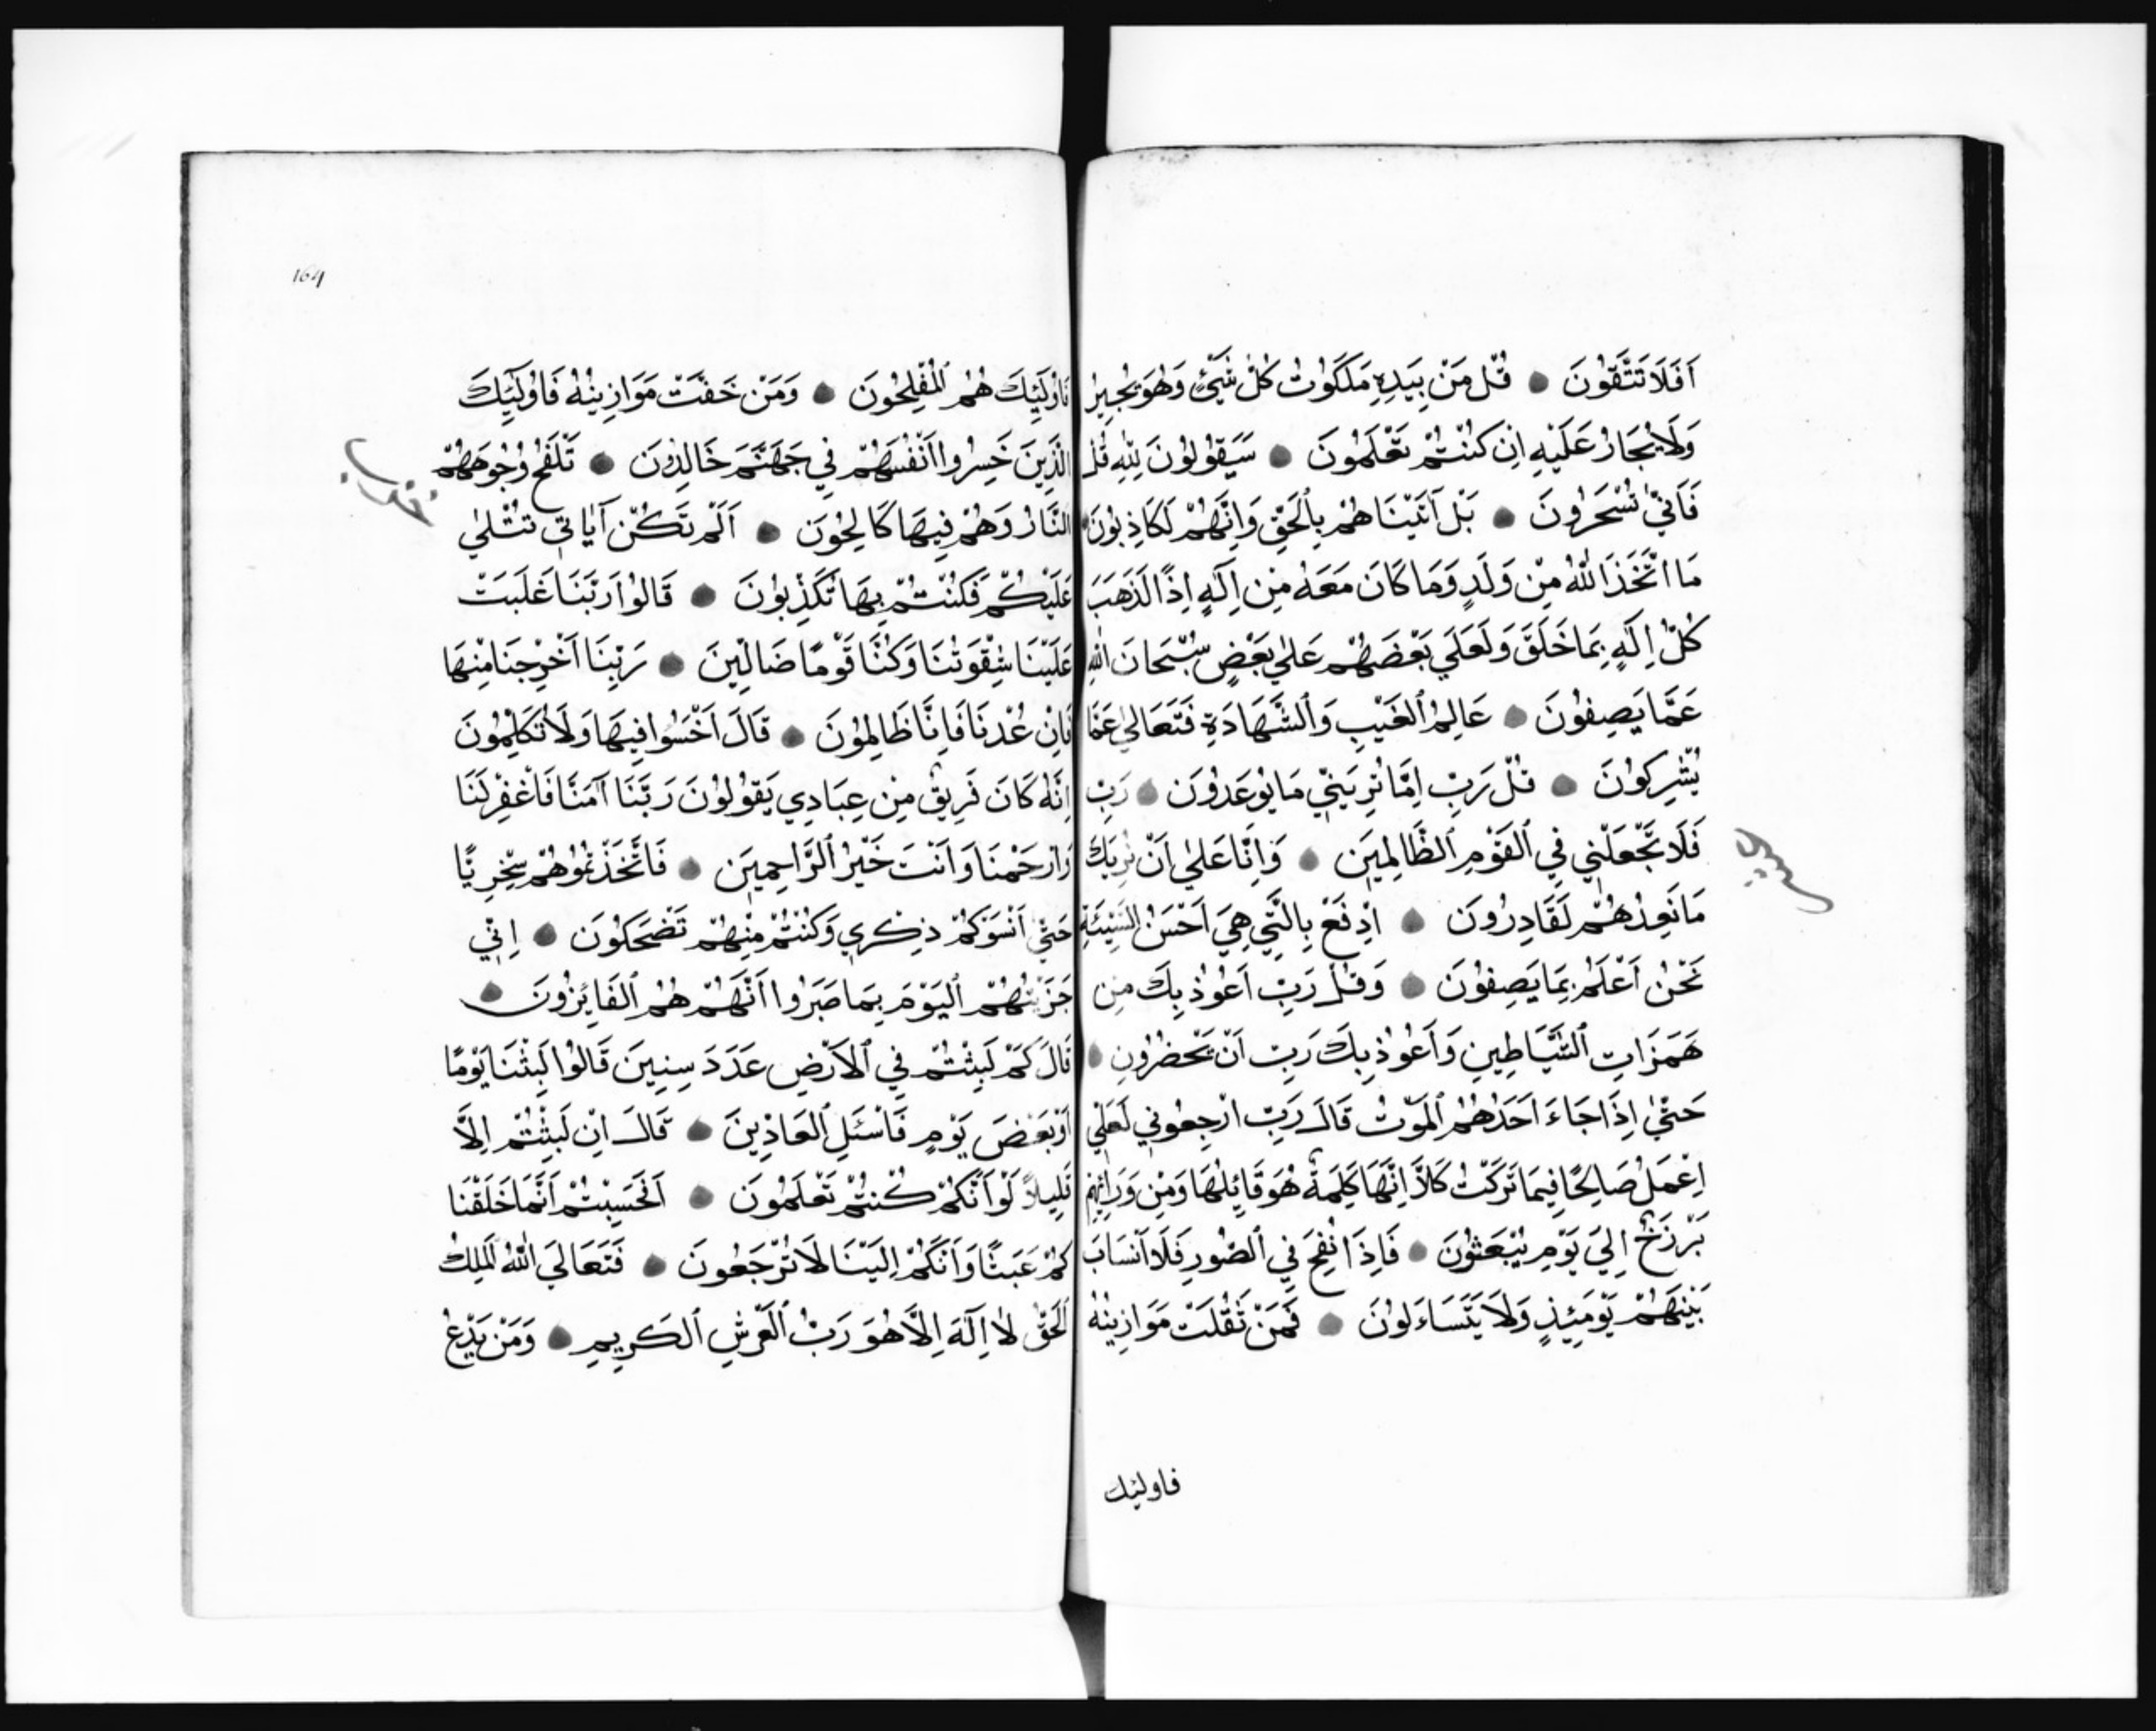 اَفَلَا تَتَّقُونَ ۝ قُلْ مَنْ بِيَدِهِ مَلَكُوْتُ كُلِّ شَيْءٍ وَهُوَ يُجِيرُ
وَلَا يُجَارُ عَلَيْهِ اِنْ كُنْتُمْ تَعْلَمُونَ ۝ سَيَقُولُونَ لِلّٰهِ قُلْ
فَاَنّٰي تُسْحَرُونَ ۝ بَلْ آتَيْنَاهُمْ بِالْحَقِّ وَاِنَّهُمْ لَكَاذِبُونَ ۝
مَا اتَّخَذَ اللّٰهُ مِنْ وَلَدٍ وَمَا كَانَ مَعَهُ مِنْ اِلَهٍ اِذًا لَذَهَبَ
كُلُّ اِلَهٍ بِمَا خَلَقَ وَلَعَلَي بَعْضَهُمْ عَلٰي بَعْضٍ سُبْحَانَ اللّٰهِ
عَمَّا يَصِفُونَ ۝ عَالِمُ الْغَيْبِ وَالشَّهَادَةِ فَتَعَالٰي عَمَّا
يُشْرِكُونَ ۝ قُلْ رَبِّ اِمَّا تُرِيَنِّي مَا يُوعَدُونَ ۝ رَبِّ
فَلَا تَجْعَلْنِي فِي الْقَوْمِ الظَّالِمِيَن ۝ وَاِنَّا عَلٰي اَنْ نُرِيَكَ
مَا نَعِدُهُمْ لَقَادِرُونَ ۝ اِدْفَعْ بِالَّتِي هِيَ اَحْسَنُ السَّيِّئَةِ
نَحْنُ اَعْلَمُ بِمَا يَصِفُونَ ۝ وَقُلْ رَبِّ اَعُوذُ بِكَ مِن
هَمَزَاتِ الشَّيَاطِينِ وَاَعُوذُ بِكَ رَبِّ اَنْ يَحْضُرُونِ ۝
حَتّٰي اِذَا جَاءَ اَحَدَهُمُ الْمَوْتُ قَالَ رَبِّ ارْجِعُونِي لَعَلِّي
اِعْمَلُ صَالِحًا فِيمَا تَرَكْتُ كَلَّا اِنَّهَا كَلِمَةٌ هُوَ قَايِلُهَا وَمِنْ وَرَائِهِمْ
بَرْزَخٌ اِلَيَ يَوْمِ يُبْعَثُونَ ۝ فَاِذَا نُفِخَ فِي الصُّورِ فَلَا اَنْسَابَ
بَيْنَهُمْ يَوْمَئِذٍ وَلَا يَتَسَاءَلُونَ ۝ فَمَنْ ثَقُلَتْ مَوَازِينُهُ
فاوليك
164
فَاُولَئِكَ هُمُ الْمُفْلِحُونَ ۝ وَمَنْ خَفَّتْ مَوَازِينُهُ فَاُولَئِكَ
الَّذِينَ خَسِرُوا اَنْفُسَهُمْ فِي جَهَنَّمَ خَالِدُونَ ۝ تَلْفَحُ وُجُوهَهُمُ
النَّارُ وَهُمْ فِيهَا كَالِحُونَ ۝ اَلَمْ تَكُنْ آيَاتِي تُتْلٰي
عَلَيْكُمْ فَكُنْتُمْ بِهَا تُكَذِّبُونَ ۝ قَالُوا رَبَّنَا غَلَبَتْ
عَلَيْنَا شِقْوَتُنَا وَكُنَّا قَوْمًا ضَالِّينَ ۝ رَبَّنَا اَخْرِجْنَا مِنْهَا
فَاِنْ عُدْنَا فَاِنَّا ظَالِمُونَ ۝ قَالَ اخْسَوُا فِيهَا وَلَا تُكَلِّمُونَ
اِنَّهُ كَانَ فَرِيقٌ مِنْ عِبَادِي يَقُولُونَ رَبَّنَا آمَنَّا فَاغْفِرْ لَنَا
وَارْحَمْنَا وَاَنْتَ خَيْرُ الرَّاحِمِيَن ۝ فَاتَّخَذْتُمُوهُمْ سِخْرِيًّا
حَتّٰي اَنْسَوْكُمْ ذِكْرِي وَكُنْتُمْ مِنْهُمْ تَضْحَكُونَ ۝ اِنِّي
جَزَيْتُهُمُ الْيَوْمَ بِمَا صَبَرُوا اَنَّهُمْ هُمُ الْفَايِزُونَ ۝
قَالَ كَمْ لَبِثْتُمْ فِي الْاَرْضِ عَدَدَ سِنِينَ قَالُوا لَبِثْنَا يَوْمًا
اَوْ بَعْضَ يَوْمٍ فَاسْئَلِ الْعَادِّينَ ۝ قَالَ اِنْ لَبِثْتُمْ اِلَّا
قَلِيلًا لَوْ اَنَّكُمْ كُنْتُمْ تَعْلَمُونَ ۝ اَفَحَسِبْتُمْ اَنَّمَا خَلَقْنَا
كُمْ عَبَثًا وَاَنَّكُمْ اِلَيْنَا لَا تُرْجَعُونَ ۝ فَتَعَالَي اللّٰهُ الْمَلِكُ
الْحَقُّ لَا اِلَهَ اِلَّا هُوَ رَبُّ الْعَرْشِ الْكَرِيمِ ۝ وَمَنْ يَدْعُ